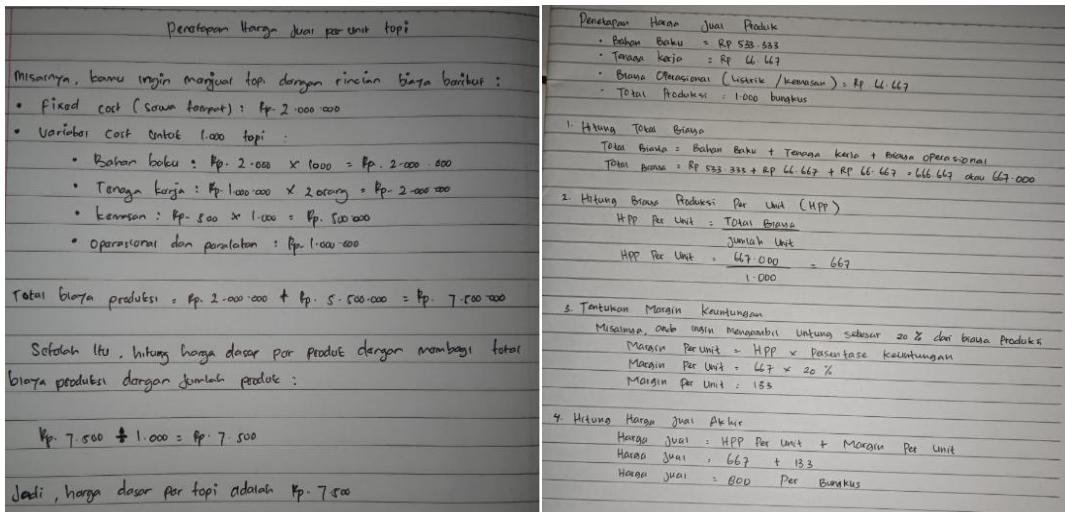 Penetapan Harga Jual per unit topi
misalnya, kamu ingin menjual topi dengan rincian biaya berikut :
• Fixed cost (sewa tempat) : Rp. 2.000.000
• Variabel cost untuk 1.000 topi :
• Bahan baku : Rp. 2.000 x 1000 = Rp. 2.000.000
• Tenaga kerja : Rp. 1.000.000 x 2 orang = Rp. 2.000.000
• kemasan : Rp. 500 x 1.000 = Rp. 500.000
• Operasional dan peralatan : Rp. 1.000.000
Total biaya produksi = Rp. 2.000.000 + Rp. 5.500.000 = Rp. 7.500.000
Setelah itu, hitung harga dasar per produk dengan membagi total
biaya produksi dengan jumlah produk :
Rp. 7.500 ÷ 1.000 = Rp. 7.500
Jadi, harga dasar per topi adalah Rp. 7.500
Penetapan Harga Jual Produk
• Bahan Baku = Rp 533.333
• Tenaga kerja : Rp 66.667
• Biaya Operasional (Listrik / kemasan) : Rp 66.667
• Total Produksi : 1.000 bungkus
1. Hitung Total Biaya
Total Biaya = Bahan Baku + Tenaga kerja + Biaya operasional
Total Biaya = Rp 533.333 + Rp 66.667 + Rp 66.667 = 666.667 atau 667.000
2. Hitung Biaya Produksi Per Unit (HPP)
HPP Per Unit = Total Biaya
Jumlah Unit
HPP Per Unit = 667.000 = 667
1.000
3. Tentukan Margin Keuntungan
Misalnya, anda ingin mengambil untung sebesar 20 % dari biaya Produksi
Margin Per unit = HPP x Pesentase keuntungan
Margin Per Unit = 667 x 20 %
Margin Per Unit : 133
4. Hitung Harga Jual Akhir
Harga Jual = HPP Per Unit + Margin Per Unit
Harga Jual = 667 + 133
Harga Jual = 800 Per Bungkus